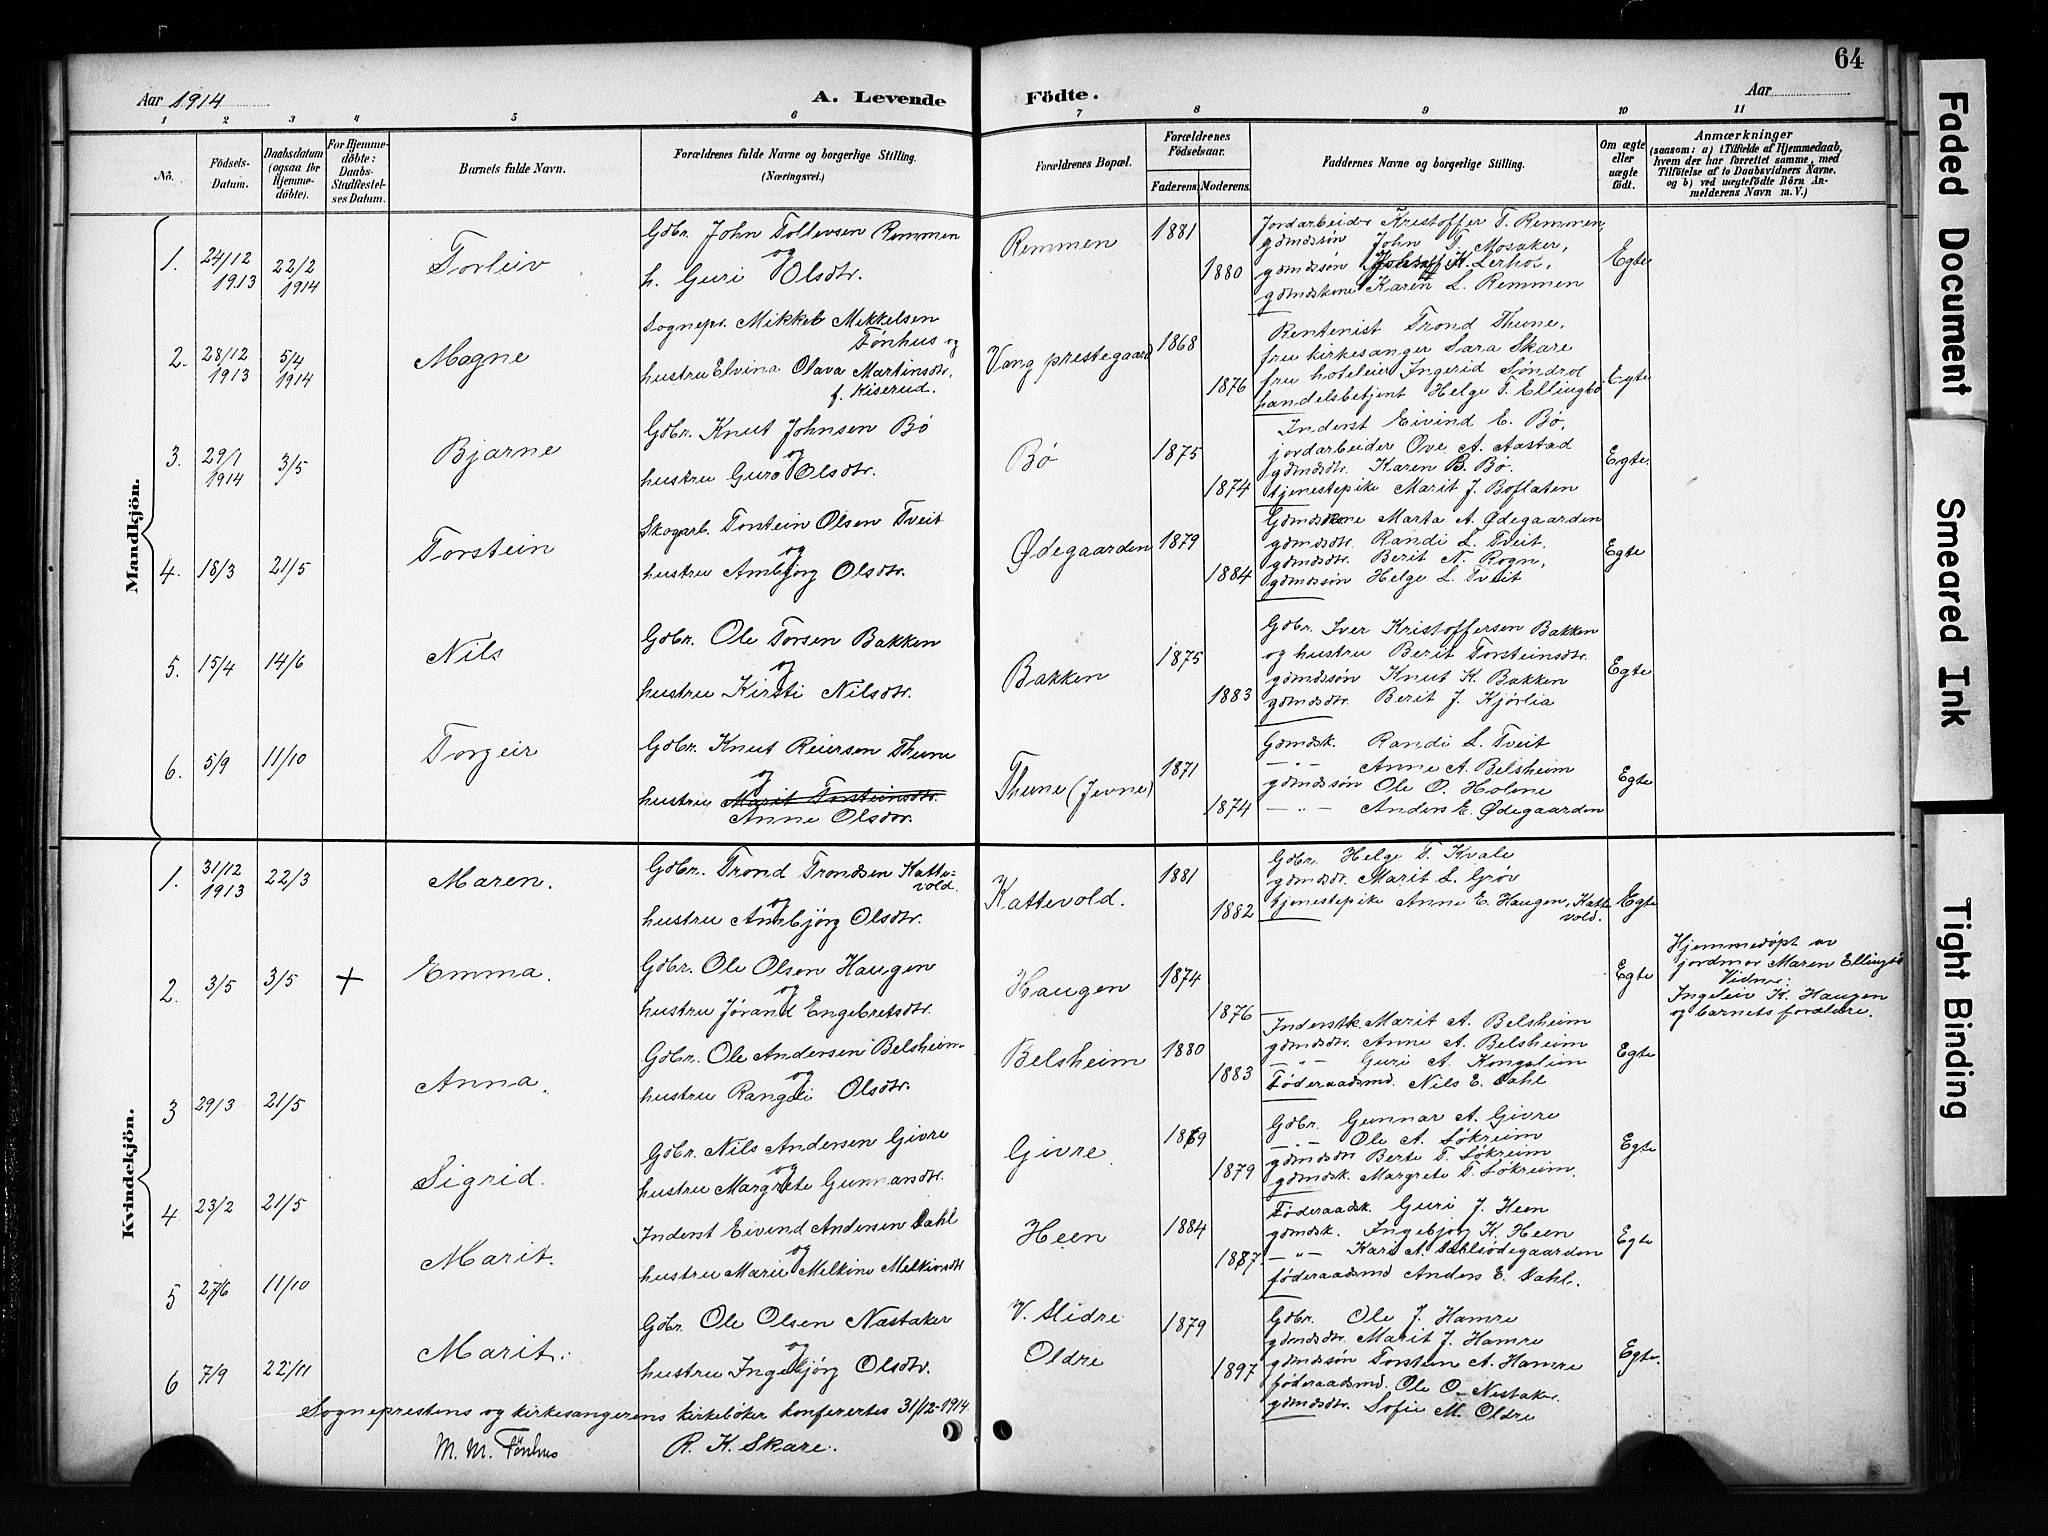 64
Aar 1914
A. Levende Födte.
Aar
1 2 3 4 5 6 7 8 9 10 11
No.
Födsels-Datum.
Daabsdatum (ogsaa for Hjemmedöbte).
For Hjemmedöbte: Daabs-Stadfestelses Datum.
Barnets fulde Navn.
Forældrenes fulde Navne og borgerlige Stilling.
(Næringsvei.)
Forældrenes Bopæl.
Forældrenes Födselsaar.
Faderens. Moderens.
Faddernes Navne og borgerlige Stilling.
Om ægte eller uægte födt.
Anmærkninger
(saasom: a) i Tilfælde af Hjemmedaab, hvem der har forrettet samme, med Tilföielse af to Daabsvidners Navne, og b) ved uægtefödte Börn Anmelderens Navn m. V.)
Mandkjön.
1. 24/12 1913 22/2 1914 Torleiv
Gdbr. John Tollevsen Remmen
og
h. Guri Olsdtr.
Remmen 1881 1880
Jordarbeider Kristoffer T. Remmen,
gdmdssøn John T. Mosaker,
gdmdssøn K. Lerhol,
gdmdskone Karen L. Remmen
Egte
2. 28/12 1913 5/4 1914 Magne
Sognepr. Mikkel Mikkelsen
Tønhus og
hustru Elvina Olava Martinsdtr.
f. Kiserud.
Vang prestegaard 1868 1876
Rentenist Trond Thune,
fru kirkesanger Sara Skare
fru hoteleier Ingerid Søndrol
handelsbetjent Helge T. Ellingbø
Egte
3. 29/1 1914 3/5 Bjarne
Gdbr. Knut Johnsen Bø
og
hustru Guro Olsdtr.
Bø 1875 1874
Inderst Eivind E. Bø,
jordarbeider Ove A. Aastad
gdmdsdtr. Karen B. Bø.
tjenestepike Marit J. Boflaten
Egte
4. 18/3 21/5 Torstein
Skogarb. Torstein Olsen Tveit
og
hustru Ambjørg Olsdtr.
Ødegaarden 1879 1884
Gdmdskone Marta A. Ødegaarden
gdmdsdtr. Randi L. Tveit.
gdmdsdtr. Berit N. Rogn,
gdmdssøn Helge L. Tveit
Egte
5. 15/4 14/6 Nils
Gdbr. Ole Torsen Bakken
og
hustru Kirsti Nilsdtr.
Bakken 1875 1883
Gdbr. Iver Kristoffersen Bakken
og hustru Berit Torsteinsdtr.
gdmdssøn Knut K. Bakken
gdmdsdtr. Berit J. Kjørlia
Egte
6. 5/9 11/10 Torgeir
Gdbr. Knut Reiersen Thune
og
hustru Marit Torsteinsdtr.
Anne Olsdtr.
Thune (Jevne) 1871 1874
Gdmdsk. Randi L. Tveit
— " — Anne A. Belsheim
gdmdssøn Ole O. Holene
— " — Anders E. Ødegaarden
Egte
Kvindekjön.
1. 31/12 1913 22/3 Maren.
Gdbr. Trond Trondsen Kattevold.
og
hustru Ambjörg Olsdtr.
Kattevold. 1881 1882
Gdbr. Helge T. Kvale
gdmdsdtr. Marit L. Grøv
tjenestepike Anne E. Haugen, Kattevold.
Egte
2. 3/5 3/5 + Emma.
Gdbr. Ole Olsen Haugen
og
hustru Jørand Engebretsdtr.
Haugen 1874 1876
Egte
Hjemmedøpt av
jordmor Maren Ellingbø
Vidner:
Ingeleiv K. Haugen
og barnets forældre.
3 29/3 21/5 Anna.
Gdbr. Ole Andersen Belsheim
og
hustru Rangdi Olsdtr.
Belsheim 1880 1883
Inderstk. Marit A. Belsheim
gdmdsdtr. Anne A. Belsheim
— " — Guri A. Kongslien
Føderaadsmd. Nils E. Dahl
Egte
4. 23/2 21/5 Sigrid.
Gdbr. Nils Andersen Givre
og
hustru Margrete Gunnarsdtr.
Givre 1869 1879
Gdbr. Gunnar A. Givre
— " — Ole A. Søkreim
gdmdsdtr Berte T. Søkreim
gdmdsk. Margrete T. Søkreim.
Egte
5 27/6 11/10 Marit.
Inderst Eivind Andersen Dahl
og
hustru Marie Melkine Melkiorsdtr
Heen 1884 1887
Føderaadsk. Guri J. Heen
gdmdsk. Ingebjørg K. Heen
— " — Kari A. Dahlsødegaarden
føderaadsmd Anders E. Dahl.
Egte
6 7/9 22/11 Marit.
Gdbr. Ole Olsen Næstaker
og
hustru Ingebjørg Olsdtr.
V. Slidre
Oldre 1879 1897
Gdbr. Ole J. Hamre
gdmdsdtr. Marit J. Hamre
gdmdssøn Torstein A. Hamre
føderaadsmd. Ole O. Nestaker
gdmdsdtr. Sofie M. Oldre
Egte.
Sogneprestens og kirkesangerens kirkebøker konferertes 31/12-1914.
M. M. Tönhus R. K. Skare.
Faded Document
Smeared Ink
Tight Binding